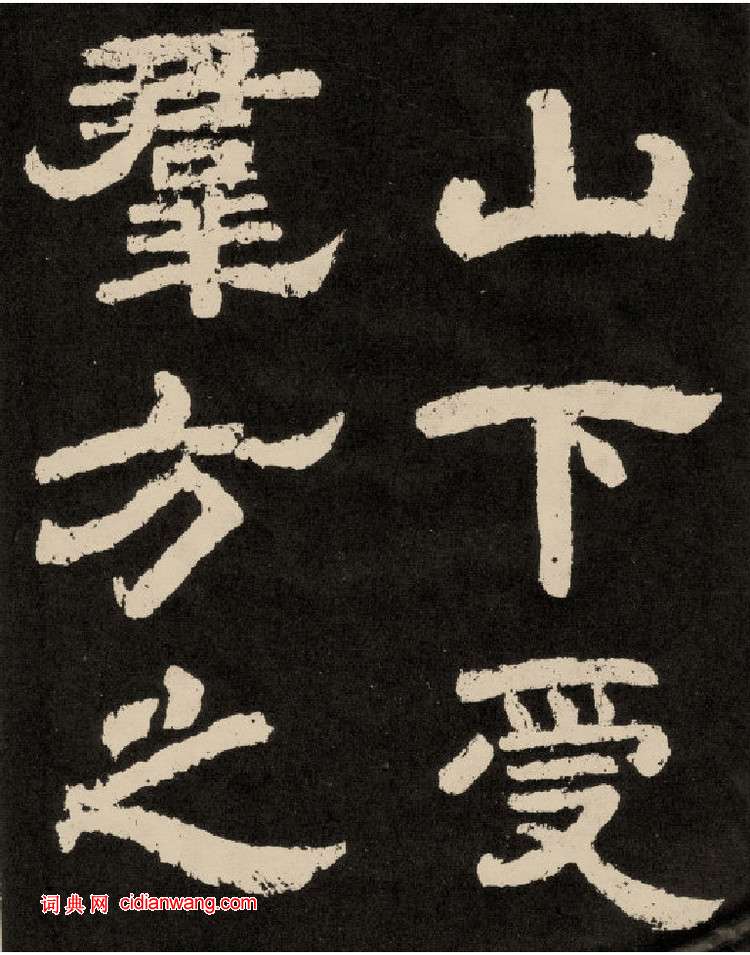 山下受
羣方之
词典网 cidianwang.com